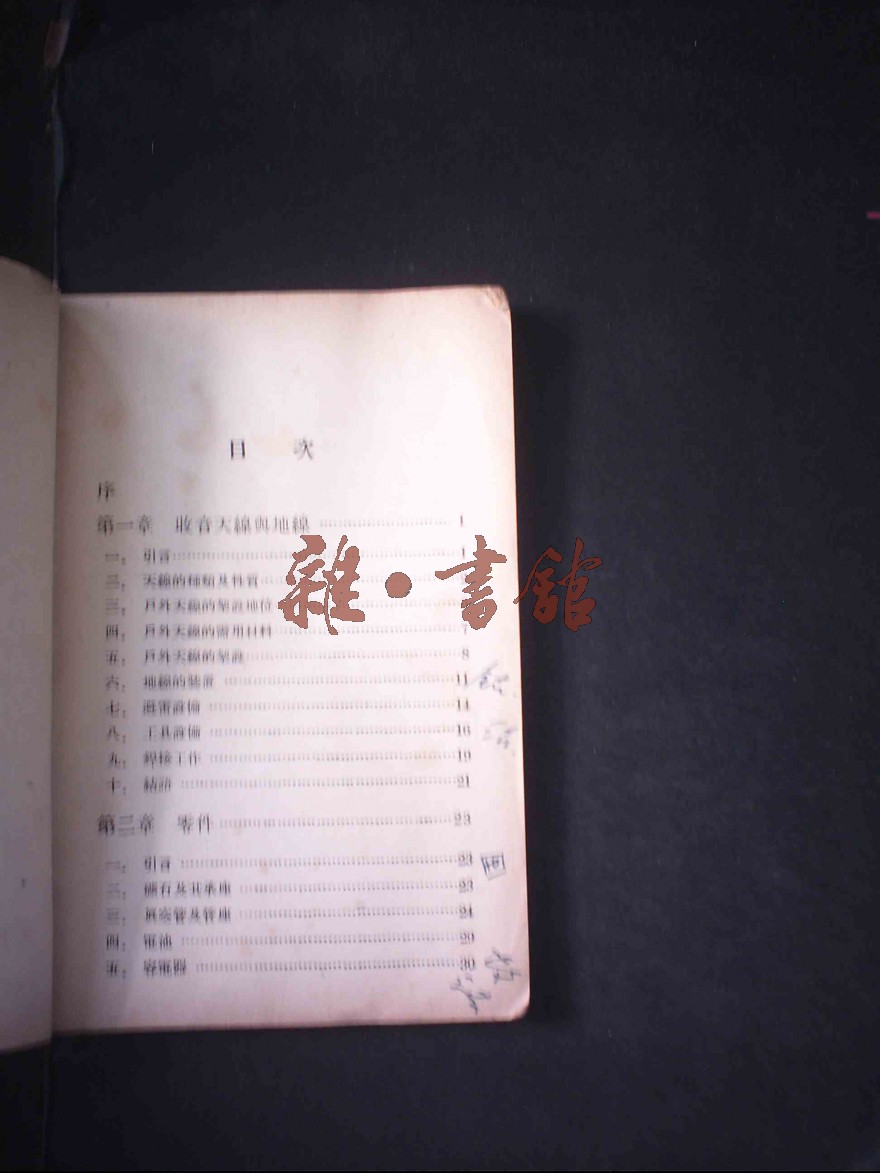 目 次
序
第一章 收音天線與地線 1
一、引言 1
二、天線的種類及性質
三、戶外天線的架設地位
四、戶外天線的需用材料 7
五、戶外天線的架設 8
六、地線的裝置 11
七、避雷設備 14
八、工具設備 16
九、銲接工作 19
十、結語 21
第二章 零件 23
一、引言 23
二、礦石及其承座 23
三、眞空管及管座 24
四、電池 29
五、容電器 30
雜•書館